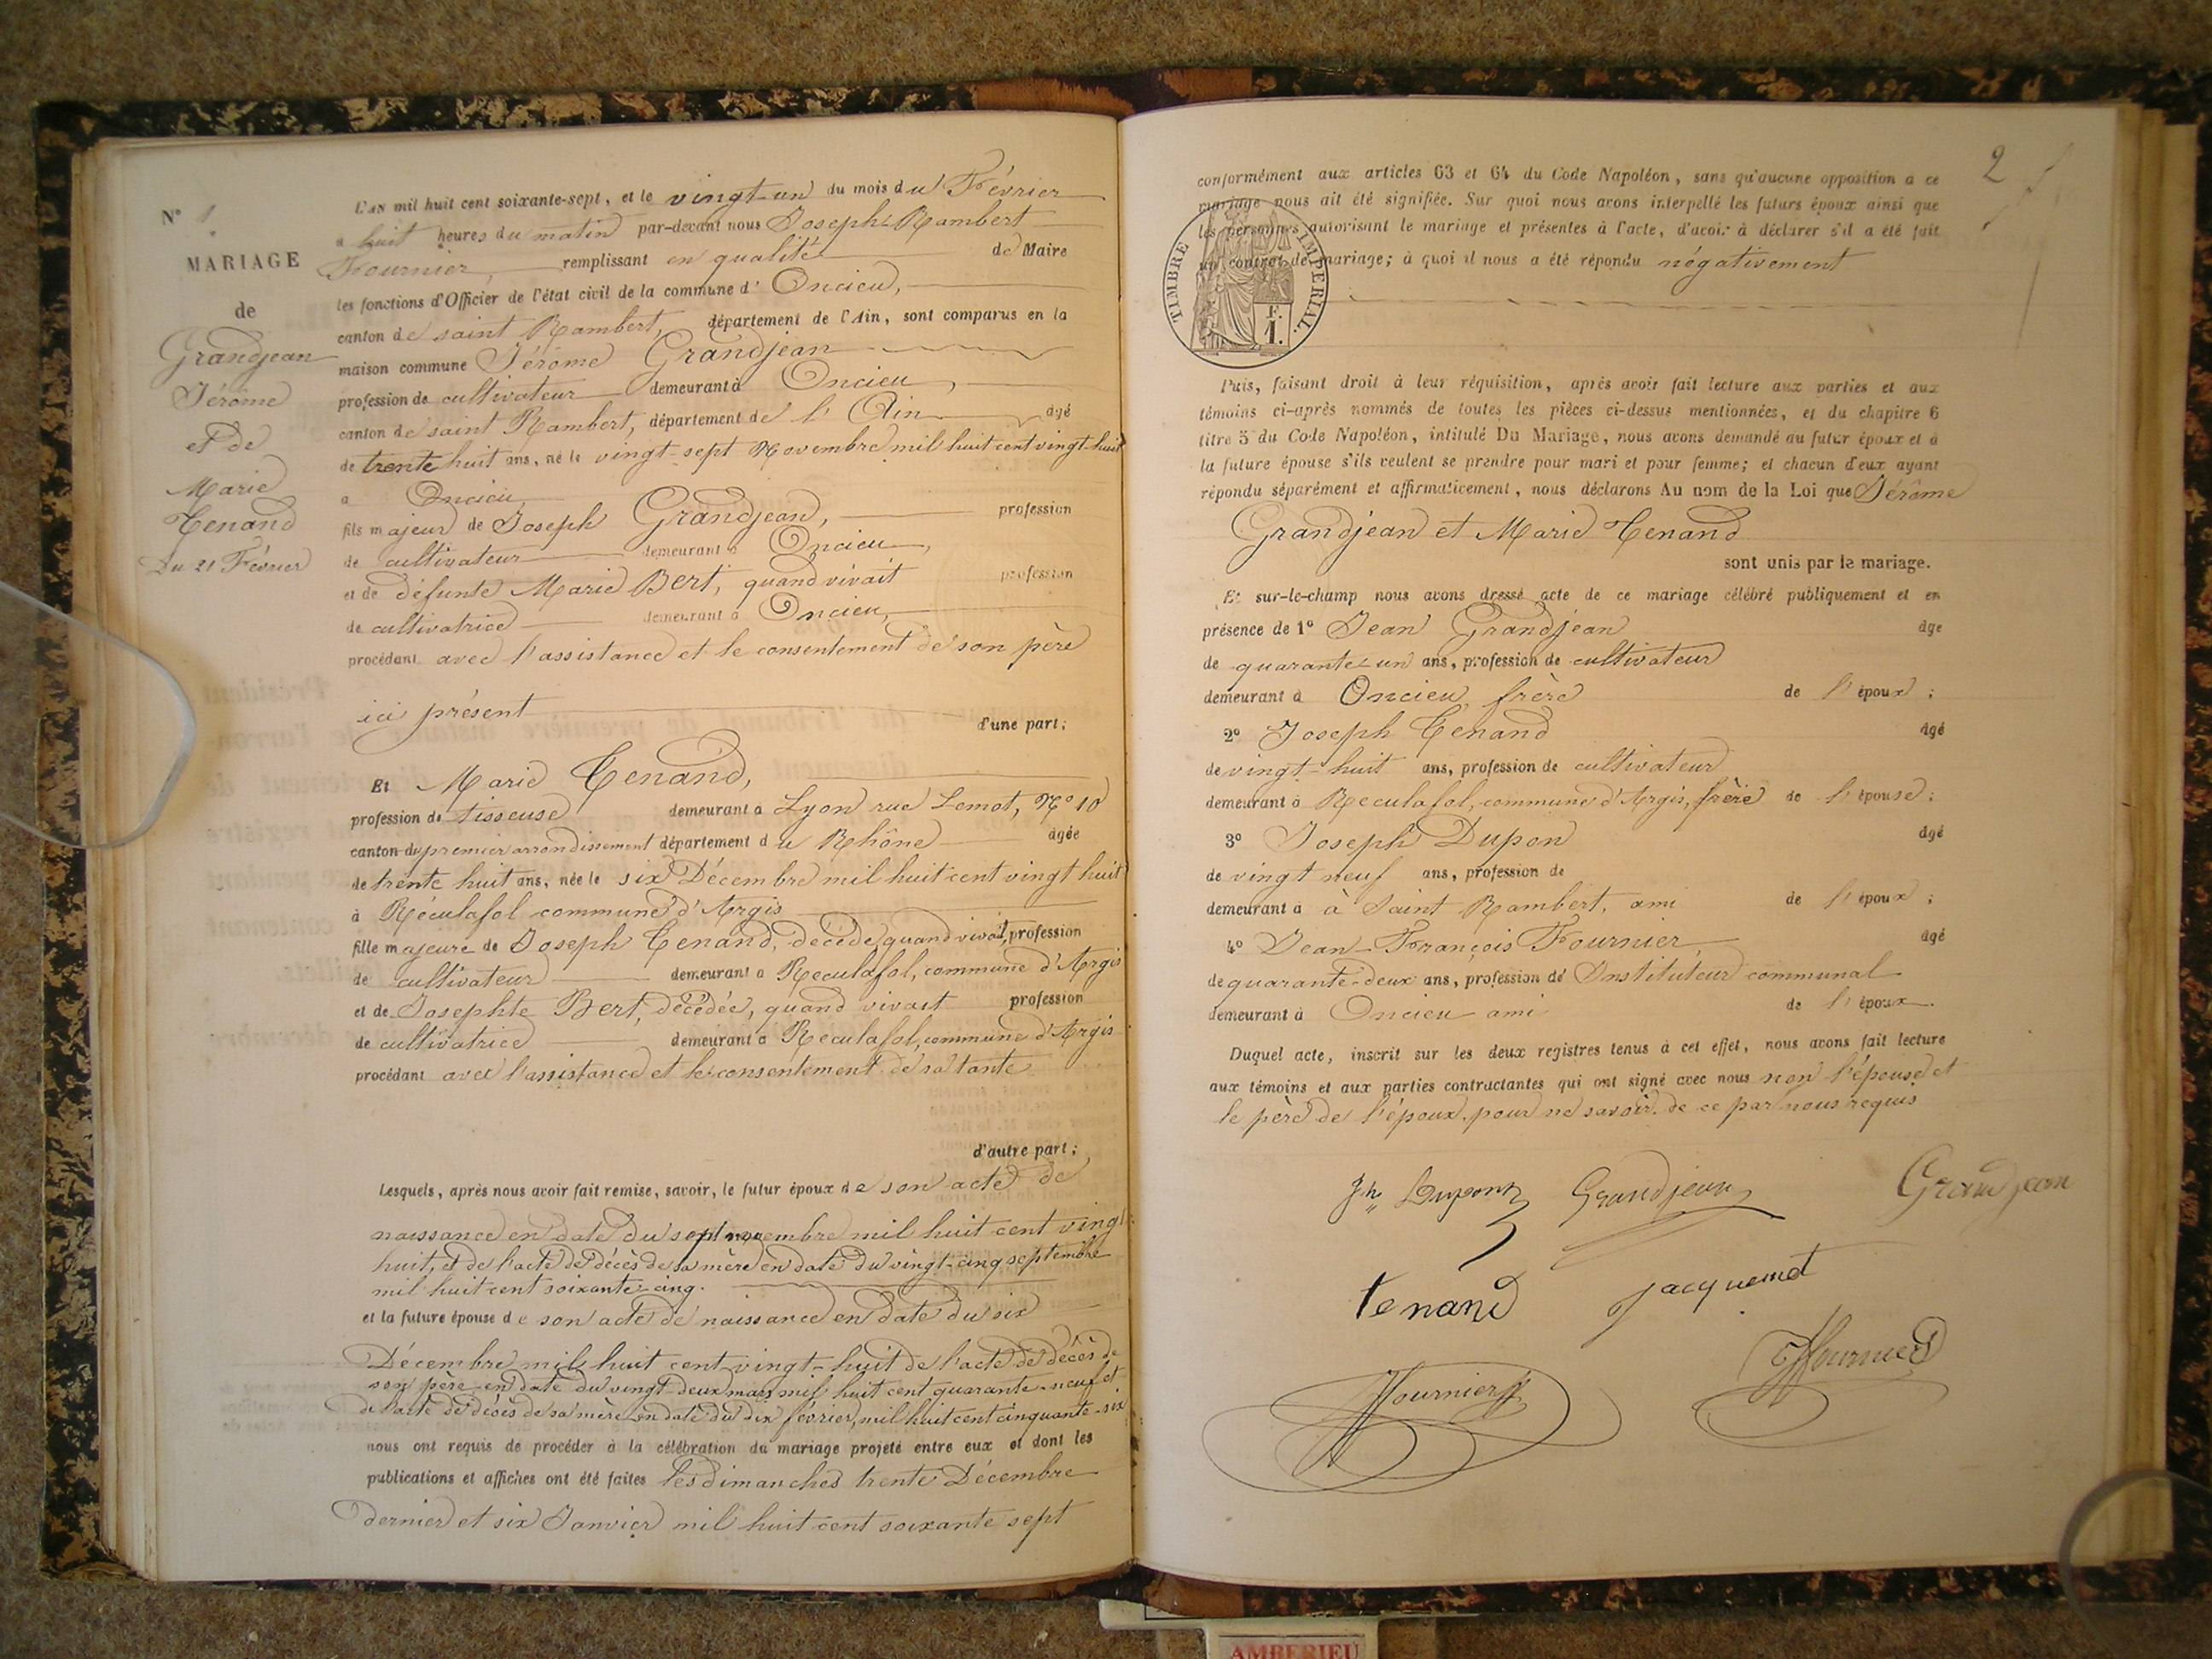 N° 1
MARIAGE
de
Grandjean
Jérôme
et de
Marie
Tenand
Du 21 Février
L'AN mil huit cent soixante-sept, et le vingt-un du mois du Février
a huit heures du matin par-devant nous Joseph-Rambert
Fournier, remplissant en qualité de Maire
les fonctions d'Officier de l'état civil de la commune d' Oncieu,
canton de saint Rambert, département de l'Ain, sont comparus en la
maison commune Jérôme Grandjean
profession de cultivateur demeurant à Oncieu,
canton de saint Rambert, département de l'Ain âgé
de trente huit ans, né le vingt-sept Novembre mil huit cent vingt-huit
a Oncieu,
fils majeur de Joseph Grandjean, profession
de cultivateur demeurant à Oncieu,
et de défunte Marie Bert, quand vivait profession
de cultivatrice demeurant à Oncieu,
procédant avec l'assistance et le consentement de son père
ici présent
d'une part;
Et Marie Tenand,
profession de tisseuse demeurant à Lyon rue Lemot, N° 10
canton du premier arrondissement département du Rhône âgée
de trente huit ans, née le six Décembre mil huit cent vingt huit
à Réculafol commune d'Argis
fille majeure de Joseph Tenand, décédé, quand vivait, profession
de cultivateur demeurant a Reculafol, commune d'Argis
et de Josephte Bert, décédée, quand vivait profession
de cultivatrice demeurant à Reculafol, commune d'Argis
procédant avec l'assistance et le consentement de sa tante
d'autre part;
Lesquels, après nous avoir fait remise, savoir, le futur époux de son acte de
naissance en date du sept novembre mil huit cent vingt
huit, et de l'acte de décès de sa mère en date du vingt-cinq septembre
mil huit cent soixante-cinq.
et la future épouse de son acte de naissance en date du six
Décembre mil huit cent vingt-huit de l'acte de décès de
son père en date du vingt-deux mars mil huit cent quarante-neuf et
de l'acte de décès de sa mère en date du dix février, mil huit cent cinquante-six
nous ont requis de procéder à la célébration du mariage projeté entre eux et dont les
publications et affiches ont été faites les dimanches trente Décembre
dernier et six Janvier mil huit cent soixante sept
2
conformément aux articles 63 et 64 du Code Napoléon, sans qu'aucune opposition a ce
mariage nous ait été signifiée. Sur quoi nous avons interpellé les futurs époux ainsi que
les personnes autorisant le mariage et présentes à l'acte, d'avoir à déclarer s'il a été fait
un contrat de mariage; à quoi il nous a été répondu négativement
TIMBRE IMPERIAL.
F.
1.
Puis, faisant droit à leur réquisition, après avoir fait lecture aux parties et aux
témoins ci-après nommés de toutes les pièces ci-dessus mentionnées, et du chapitre 6
titre 5 du Code Napoléon, intitulé Du Mariage, nous avons demandé au futur époux et à
la future épouse s'ils veulent se prendre pour mari et pour femme; et chacun d'eux ayant
répondu séparément et affirmativement, nous déclarons Au nom de la Loi que Jérôme
Grandjean et Marie Tenand
sont unis par le mariage.
Et sur-le-champ nous avons dressé acte de ce mariage célébré publiquement et en
présence de 1° Jean Grandjean âge
de quarante-un ans, profession de cultivateur
demeurant à Oncieu, frère de l'époux;
2° Joseph Tenand âgé
de vingt-huit ans, profession de cultivateur
demeurant à Reculafol, commune d'Argis, frère de l'épouse;
3° Joseph Dupon âgé
de vingt neuf ans, profession de
demeurant à à Saint Rambert, ami de l'époux;
4° Jean-François Fournier, âgé
de quarante-deux ans, profession de Instituteur communal
demeurant à Oncieu ami de l'époux.
Duquel acte, inscrit sur les deux registres tenus à cet effet, nous avons fait lecture
aux témoins et aux parties contractantes qui ont signé avec nous non l'épouse et
le père de l'époux, pour ne savoir de ce par nous requis
Jh Dupont Grandjean Grandjean
tenand Jacquemet
Fournier
Fournier
AMBERIEU